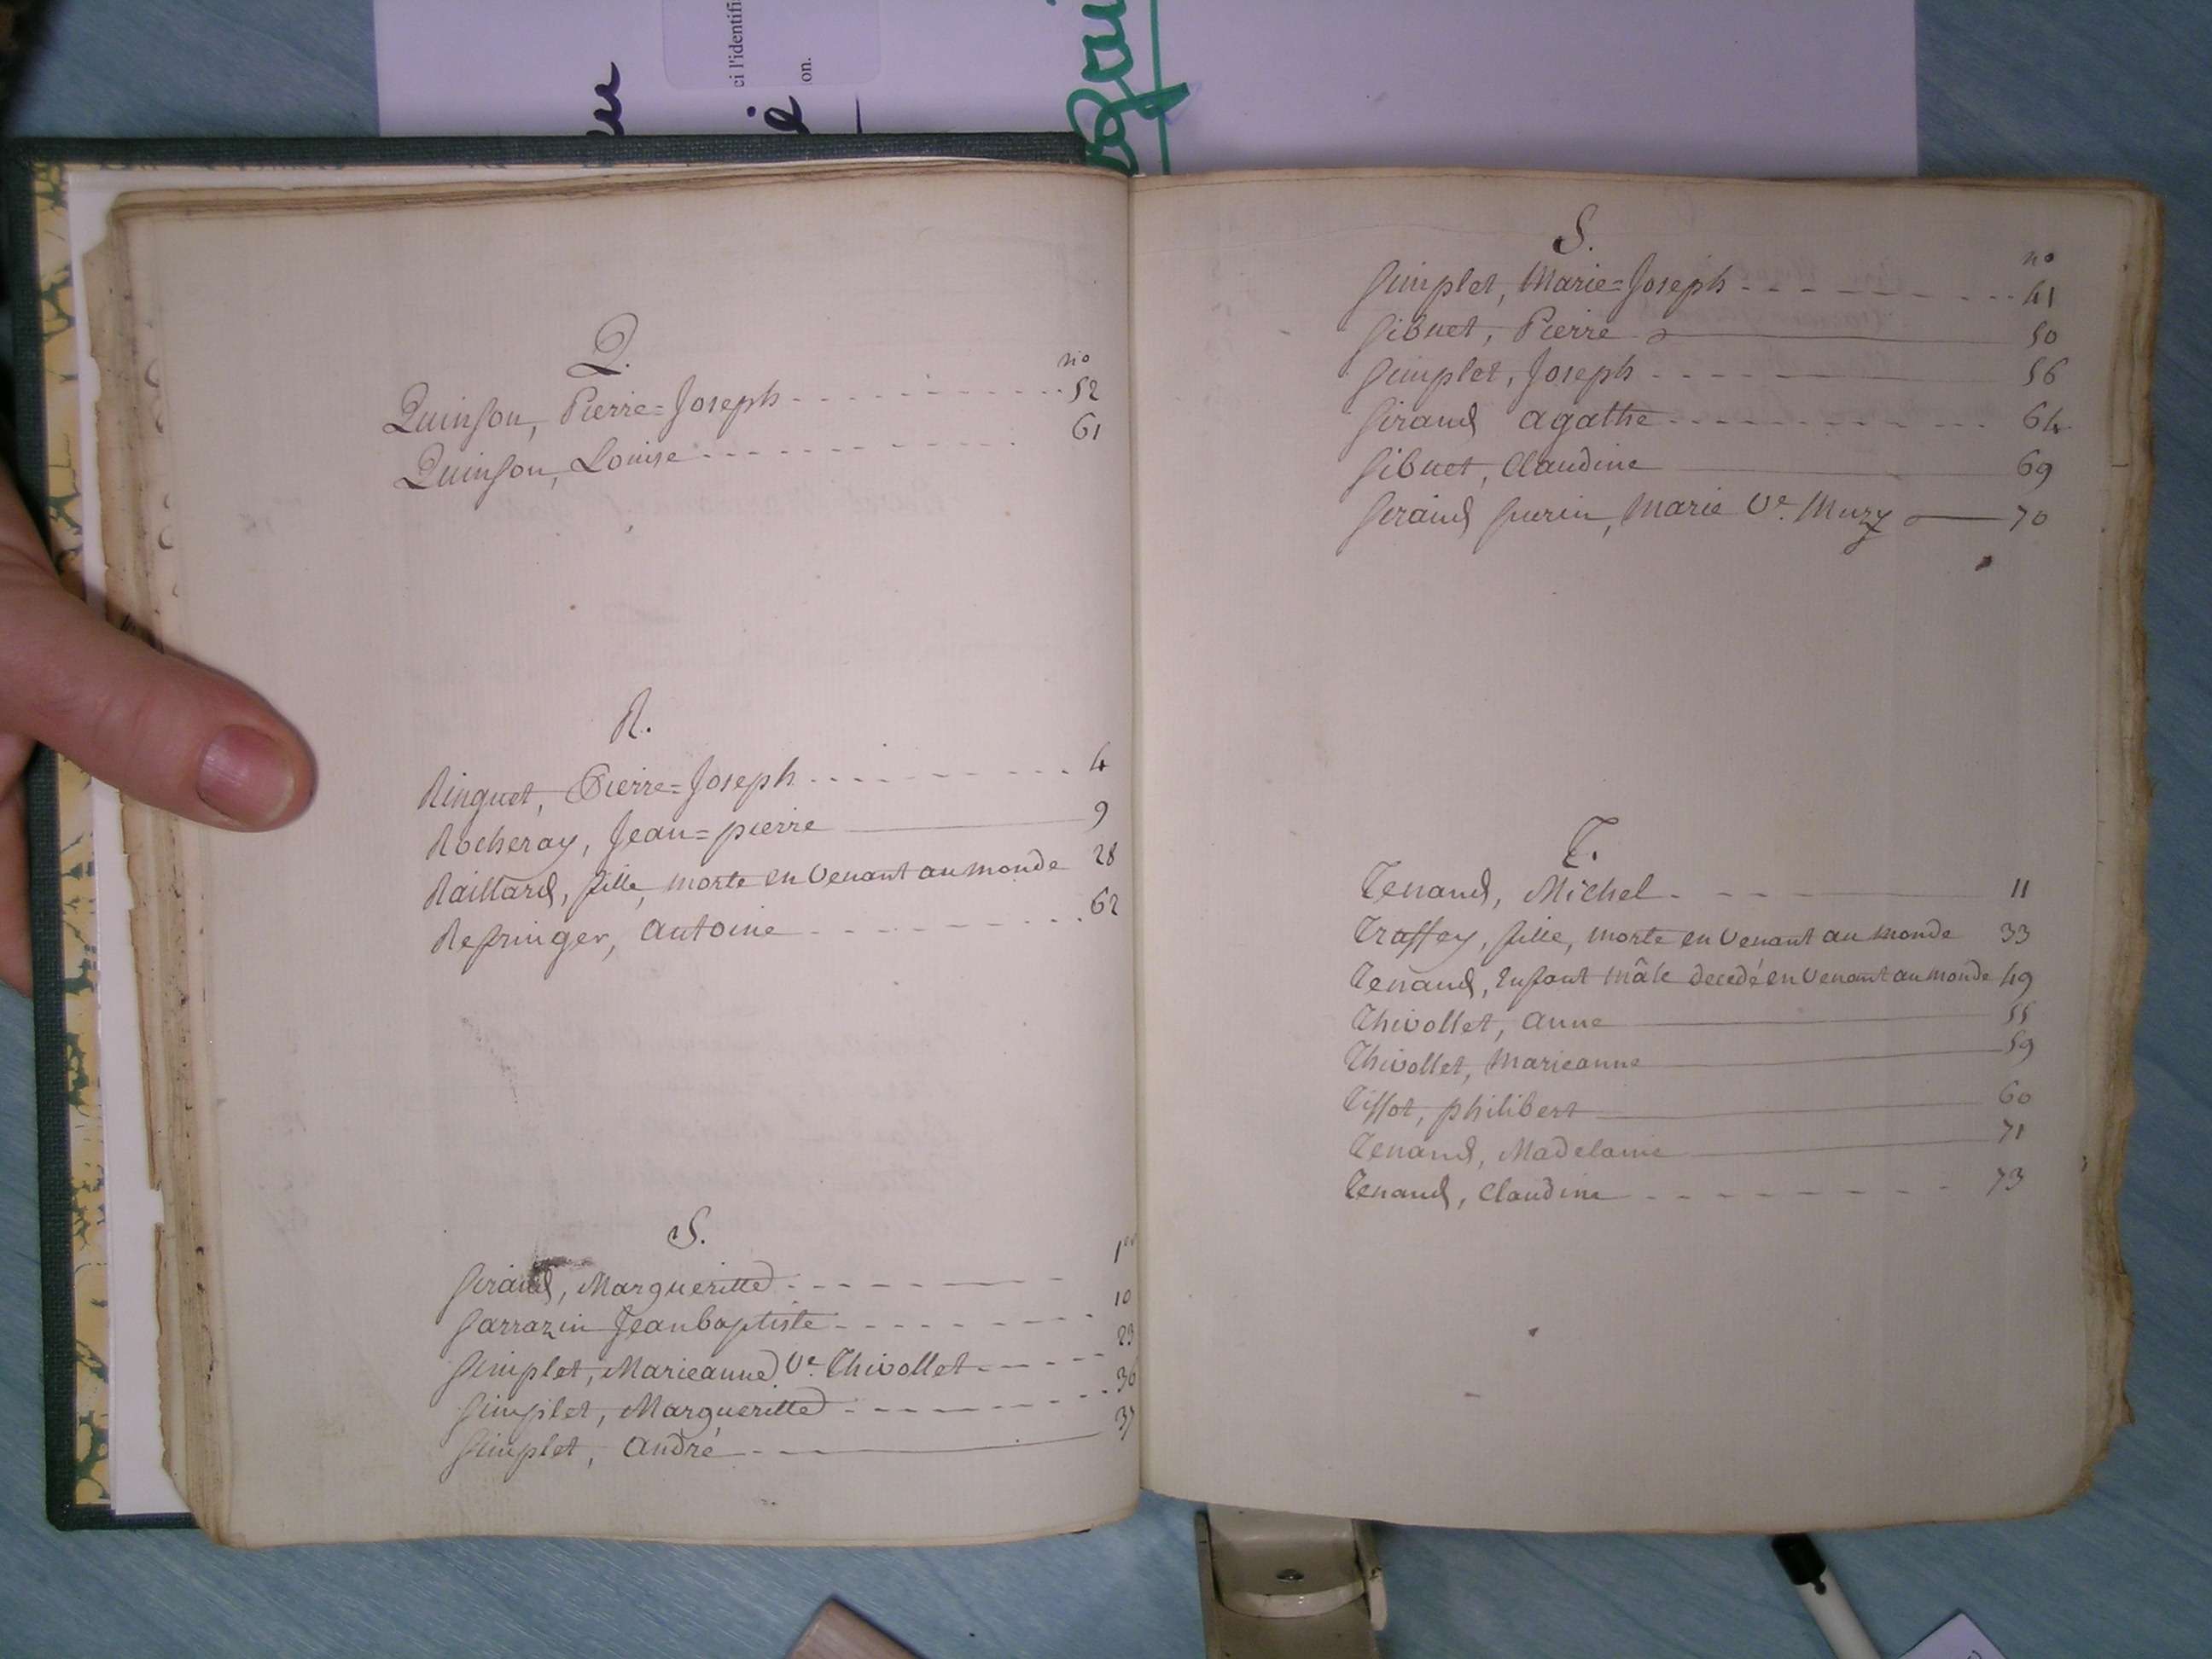 ci l'identifi
on.
Q.
no
Quinson, Pierre=Joseph 52
Quinson, Louise 61
R.
Ringuet, Pierre=Joseph 4
Rocheray, Jean=pierre 9
Raillard, fille, morte en Venant au monde 28
Antoine 62
S.
Seraud, Margueritte 1er
Sarrazin Jeanbaptiste 10
Simplet, Marieanne Ve. Thivollet 23
Simplet, Margueritte 36
Simplet, André 37
S.
no
Simplet, Marie=Joseph 41
Sibuet, Pierre 50
Simplet, Joseph 56
Siraud agathe 64
Sibuet, Claudine 69
Seraud marie Ve. Muzy 70
T.
Tenand, Michel 11
Traffey, fille, morte en Venant au monde 33
Tenand, Enfant mâle decedé en Venant au monde 49
Thivollet, anne 55
Thivollet, Marieanne 59
Tissot, philibert 60
Tenand, Madelaine 71
Tenand, Claudine 73